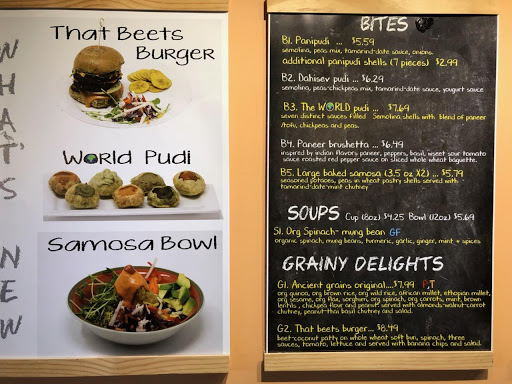 WHAT'S NEW
That Beets
Burger
World Pudi
Samosa Bowl
BITES
B1. Panipudi ... $5.59
semolina, peas mix, tamarind-date sauce, onions.
additional panipudi shells (7 pieces) $2.99
B2. Dahisev pudi ... $6.29
semolina, peas-chickpeas mix, tamarind-date sauce, yogurt sauce
B3. The WORLD pudi ... $7.69
seven distinct sauces filled Semolina shells with blend of paneer
/tofu, chickpeas and peas.
B4. Paneer brushetta ... $6.49
inspired by indian flavors paneer, peppers, basil, sweet sour tomato
sauce roasted red pepper sauce on sliced whole wheat baguette.
B5. Large baked samosa (3.5 oz X2) ... $5.79
seasoned potatoes, peas in wheat pastry shells served with
tamarind-date-mint chutney
SOUPS Cup (8oz) $4.25 Bowl (12oz) $5.69
S1. Org Spinach- mung bean GF
organic spinach, mung beans, turmeric, garlic, ginger, mint + spices
GRAINY DELIGHTS
G1. Ancient grains original...$7.99 P,T
org quinoa, org brown rice, org wild rice, african millet, ethopian millet,
org sesame, org flax, sorghum, org spinach, org carrots, mint, brown
lentils, chickpea flour and peanut served with almonds-walnut-carrot
chutney, peanut-thai basil chutney and salad.
G2. That beets burger... $8.49
beet-coconut patty on whole wheat soft bun, spinach, three
sauces, tomato, lettuce and served with banana chips and salad.